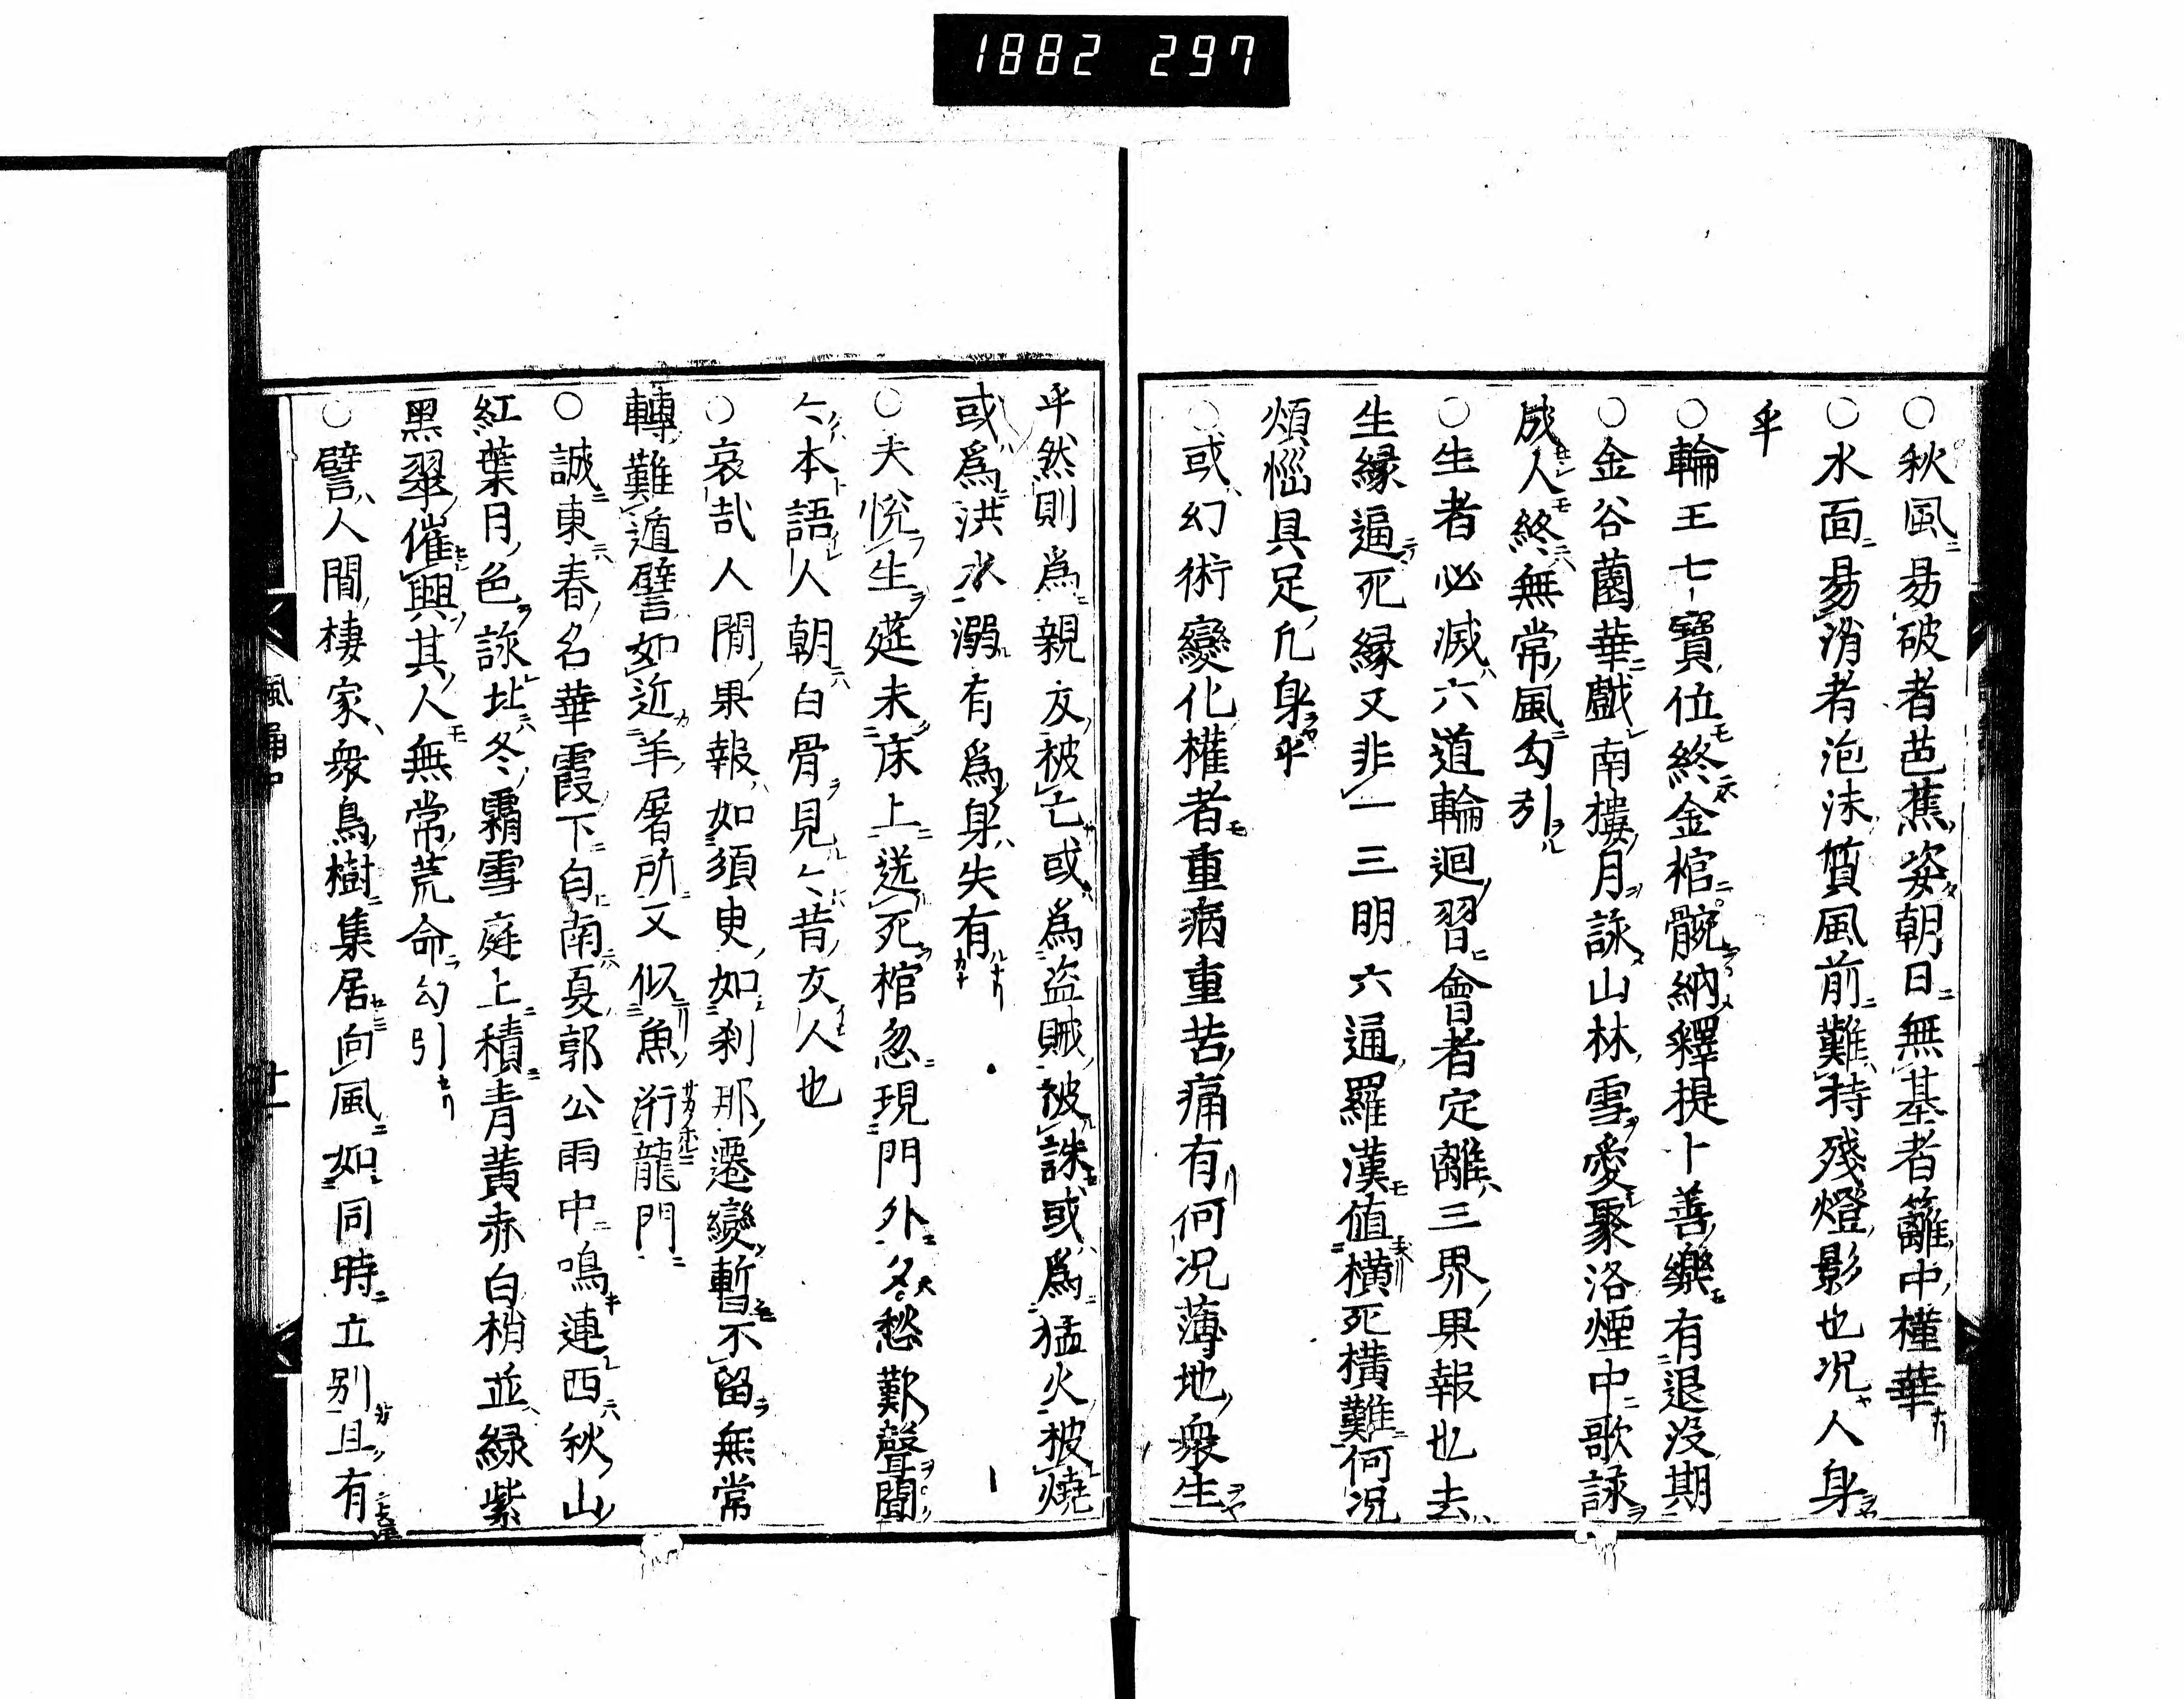 1882 297
○秋風易破者芭蕉姿朝日無基者籬中槿華
○水面易消者泡沫質風前難待殘燈影也况人身
乎
○輪王七寶位終金棺髋納釋提卜善樂有退沒期
○金谷薗華戯南樓月詠山林雪愛聚洛煙中歌詠
成人終無常風勾引
○生者必滅六道輪迴習會者定離三界果報也去
生縁逼死縁又非一三明六通羅漢値横死横難何况
煩惱具足凡身乎
○或幻術變化權者重病重苦痛有何况薄地衆生
乎然則爲親友被亡或爲盗賊被誅或爲猛火被燒
或爲洪水溺有爲身失有
○夫悦生莚未床上送死棺忽現門外多愁歎聲聞
〻本語人朝白骨見〻昔友人也
○哀哉人間果報如須臾如刹那遷變暫不留無常
轉難遁譬如近羊屠所又似魚泝龍門
○誠東春名華霞下匂南夏郭公雨中鳴連西秋山
紅葉月色詠北冬霜雪庭上積青黄赤白梢並緑紫
黑翠催興其人無常荒命勾引
○譬人間棲家衆鳥樹集居向風如同時立別且有